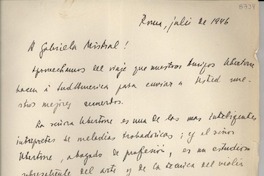 8739
Roma, julio de 1946
A Gabriela Mistral!
Aprovechamos del viaje que nuestros amigos Ubertone
hacen a Sudamerica para enviar a Usted nue-
stros mejores recuerdos.
La señora Ubertone es una de las mas inteligentes
interpretes de melodias trobadoricas; y el señor
Ubertone, abogado de profesión, es un estudioso
del arte y de la tecnica del violin